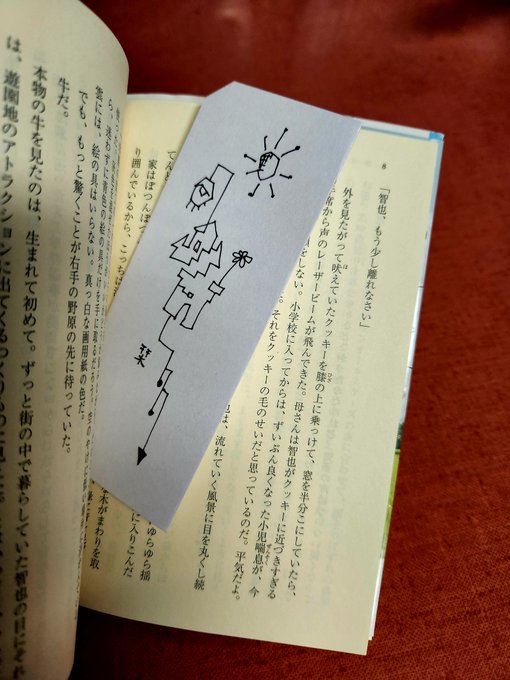 8
「智也、もう少し離れなさい」
外を見たがって吠えていたクッキーを膝の上に乗っけて、窓を半分こにしていたら、
席から声のレーザービームが飛んできた。母さんは智也がクッキーに近づきすぎる
をしない。小学校に入ってからは、ずいぶん良くなった小児喘息が、今
それをクッキーの毛のせいだと思っているのだ。平気だよ。
也は、流れていく風景に目を丸くし続
家はぽつんぽつ
ゆらゆら揺
り囲んでいるから、こっちは
に入りこんだ
がまわりを取
栞
雲には、絵の具はいらない。真っ白な画用紙の色だ。
でも、もっと驚くことが右手の野原の先に待っていた。
牛だ。
本物の牛を見たのは、生まれて初めて。ずっと街の中で暮らしていた智也の目にそれ
は、遊園地のアトラクションに出てくる